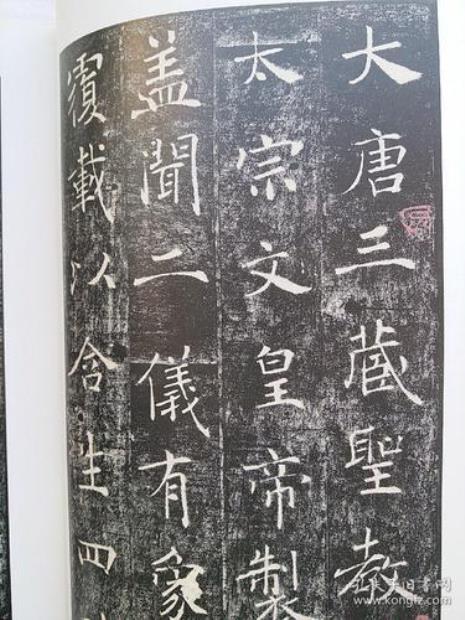 大唐三藏聖教
太宗文皇帝製
盖聞二儀有象
覆載以含生四
孔夫子旧书网